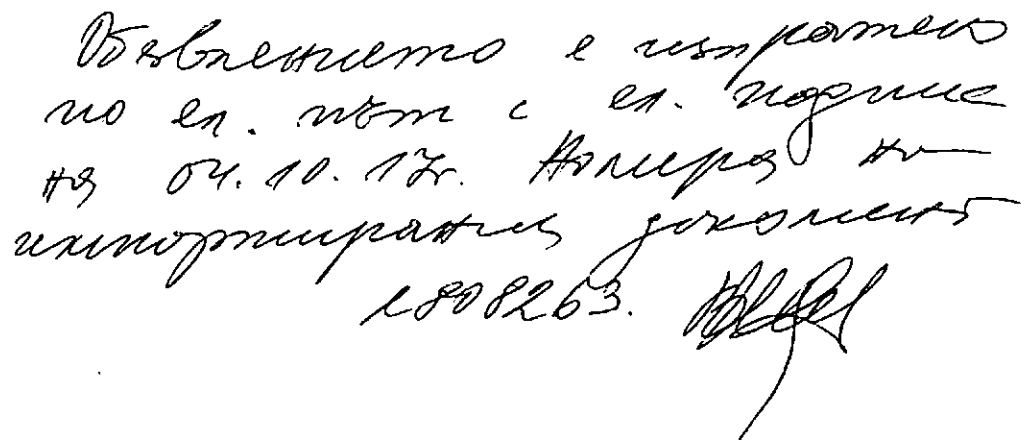 Обявлението е изпратено
по ел. път с ел. подпис
на 04.10.17г. Номера на
импортирания документ
808263.